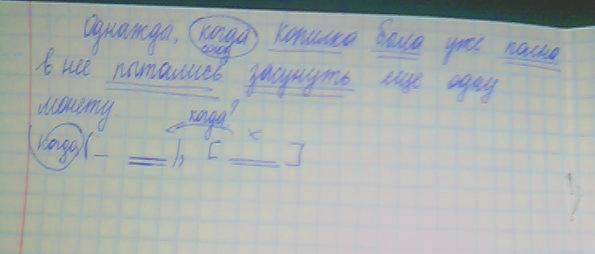 Однажды, когда копилка была уже полна
союз
в нее пытались засунуть еще одну
монету.
когда?
(когда - =), [ = ]